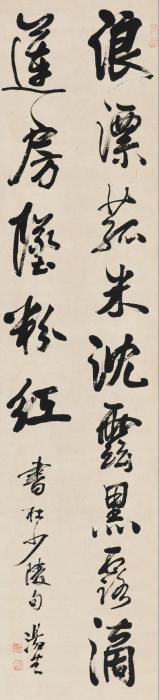 浪漂菰米沈雲黑露滴
蓮房墜粉紅
書杜少陵句